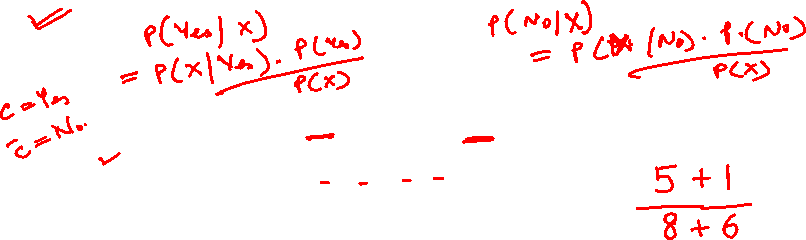 P(Yes|X)
= P(X|Yes) · P(Yes)
P(X)
P(No|X)
= P(X|No) · P·(No)
P(X)
C = Yes
C̄ = No.
5 + 1
8 + 6